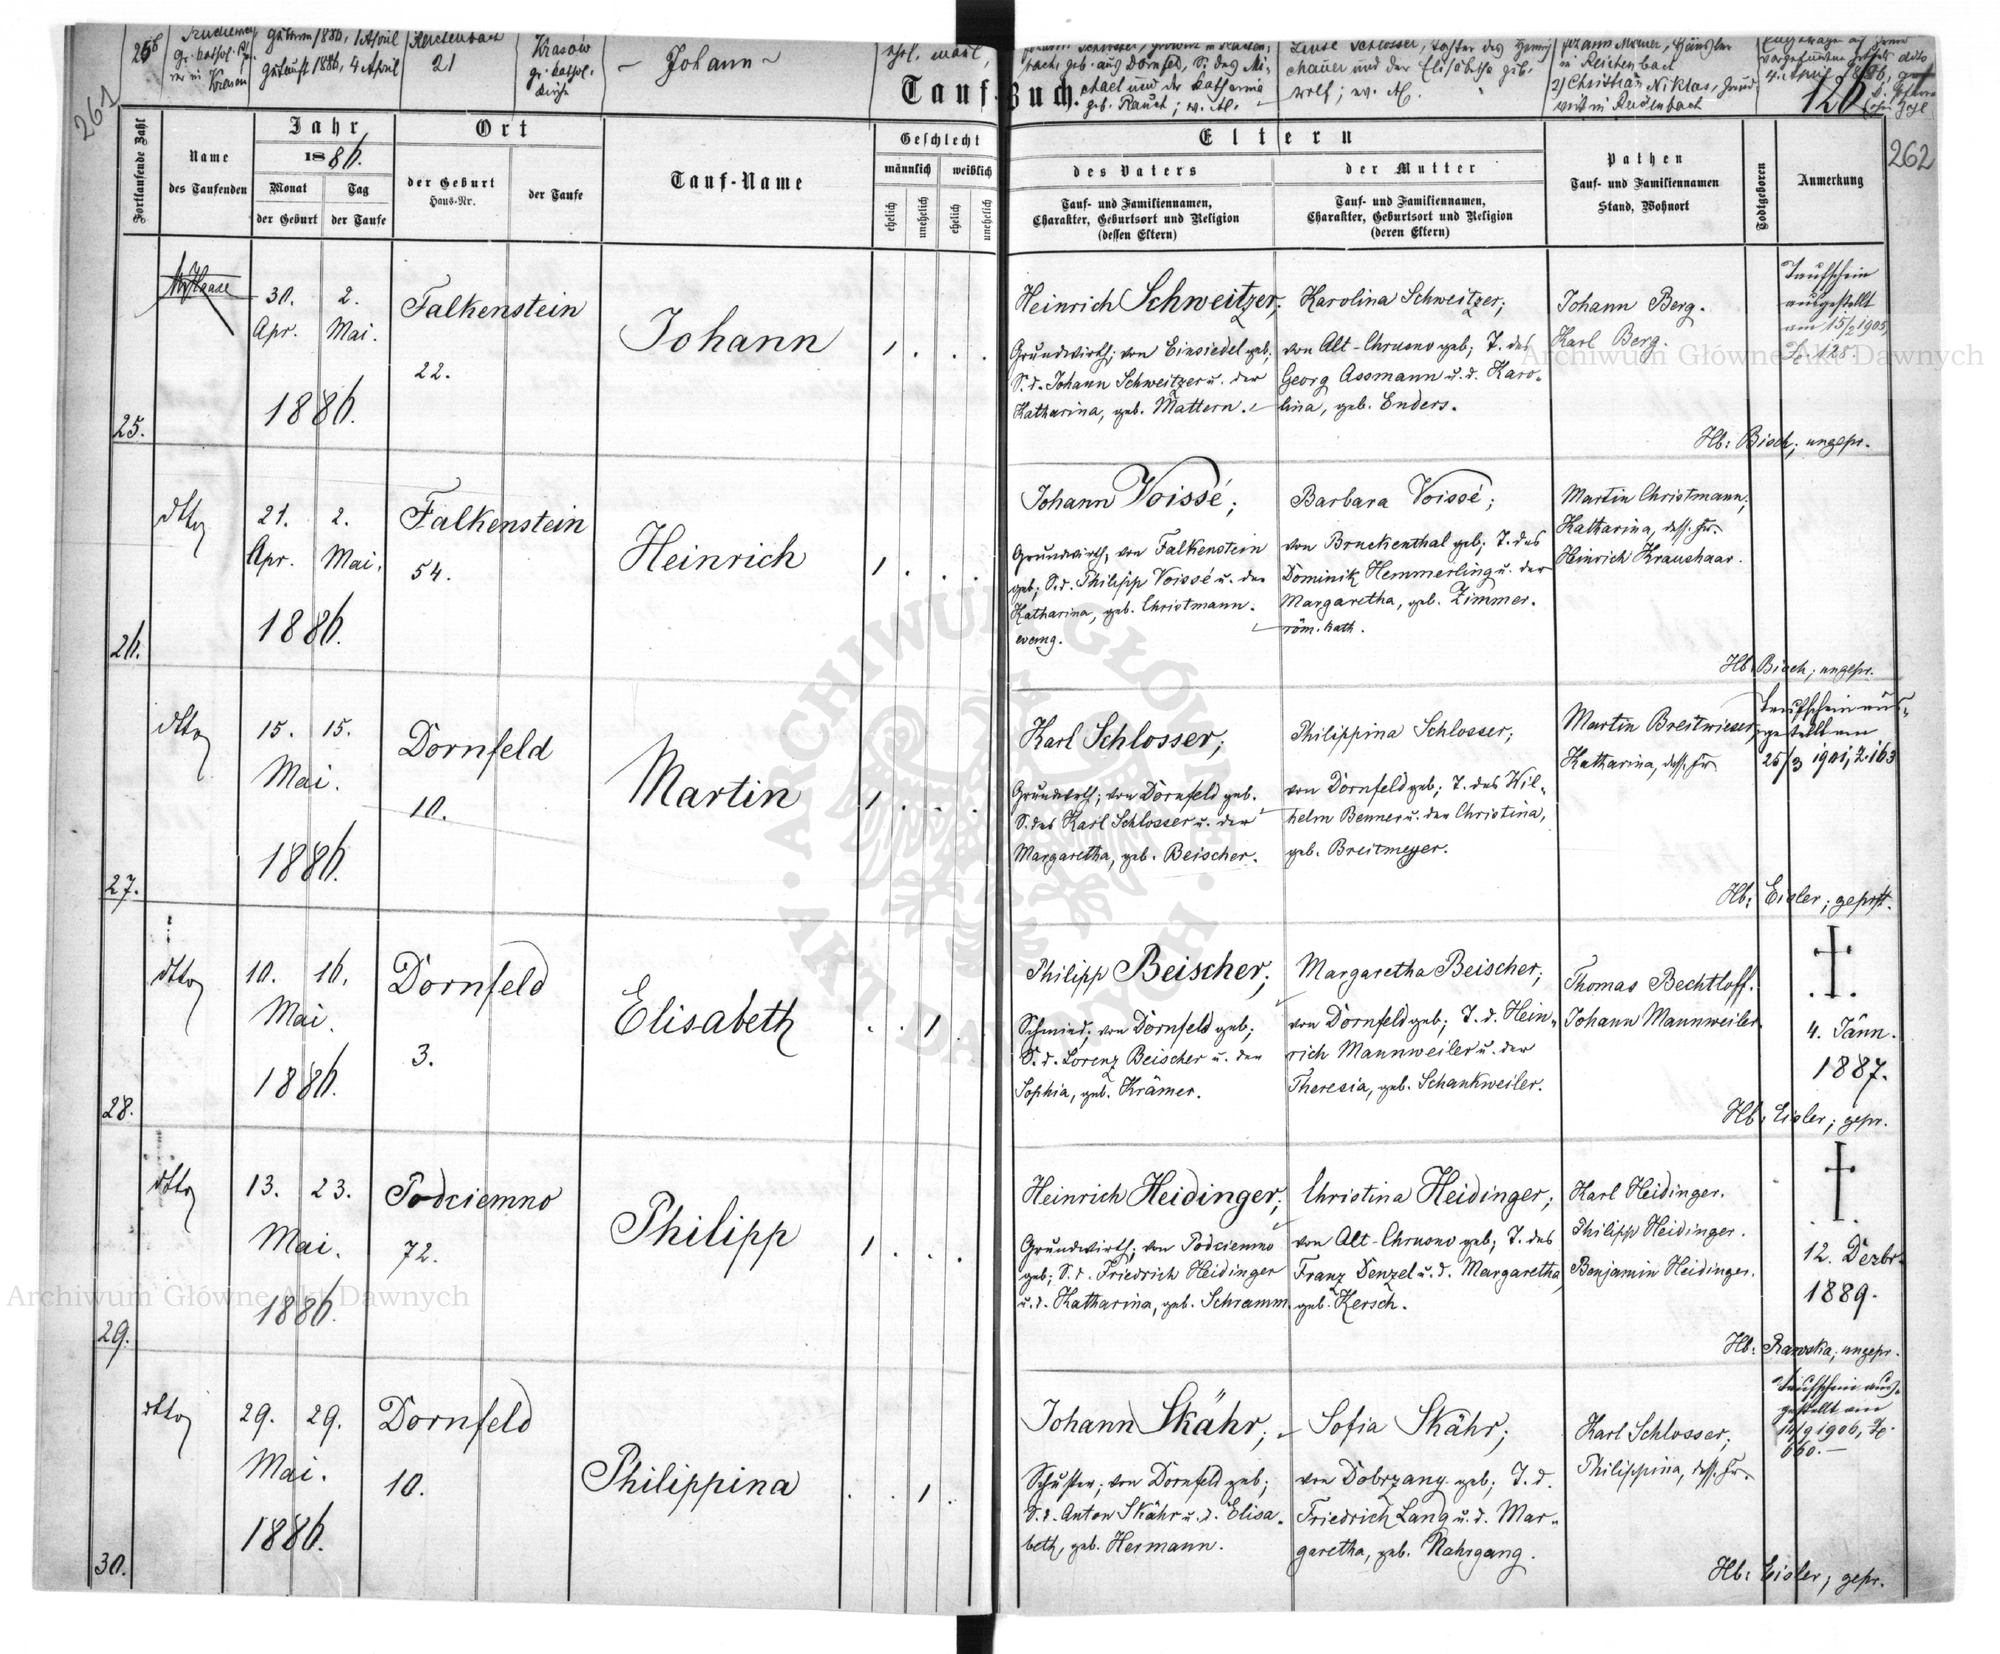 261
25b
gr. kathol.
in Krasow
geboren 1886, 1 April
getauft 1886, 4 April
Reichenbach
21
Krasów
gr. kathol.
Kirche
– Johann –
ehl. männl,
geb. aus Dornfeld, S. des Mi-
chael und der Katharina
geb. Rauch; ev. Al.
Luise Schlosser, Tochter des Heinrich
und der Elisabetha geb.
Wolf; ev. Al.
in Reichenbach
2) Christian Niklas, Grund-
wirt in Reichenbach
4. April 1886,
Tauf-Buch.
126
262
Fortlaufende Zahl
Name
des Taufenden
Jahr
1886.
Monat
der Geburt
Tag
der Taufe
Ort
der Geburt
Haus-Nr.
der Taufe
Tauf-Name
Geschlecht
männlich
weiblich
ehelich
unehelich
ehelich
unehelich
Eltern
des Vaters
Tauf- und Familiennamen,
Charakter, Geburtsort und Religion
(dessen Eltern)
der Mutter
Tauf- und Familiennamen,
Charakter, Geburtsort und Religion
(deren Eltern)
Pathen
Tauf- und Familiennamen
Stand, Wohnort
Todtgeboren
Anmerkung
25.
30.
Apr.
2.
Mai.
1886.
Falkenstein
22.
Johann
1 . . .
Heinrich Schweitzer;
Grundwirth; von Einsiedel geb;
S. d. Johann Schweitzer u. der
Katharina, geb. Mattern.
Karolina Schweitzer;
von Alt-Chrusno geb; T. des
Georg Assmann u. d. Karo-
lina, geb. Enders.
Johann Berg.
Karl Berg.
Taufschein
ausgestellt
am 15/2 1905,
Z. 125.
Hb: Bisch; ungepr.
26.
dtto
21.
Apr.
2.
Mai.
1886.
Falkenstein
54.
Heinrich
1 . . .
Johann Voissé;
Grundwirth, von Falkenstein
geb; S. d. Philipp Voissé u. der
Katharina, geb. Christmann.
evang.
Barbara Voissé;
von Bruckenthal geb; T. des
Dominik Hemmerling u. der
Margaretha, geb. Zimmer.
röm. kath.
Martin Christmann;
Katharina, dess. Fr.
Heinrich Kraushaar.
Hb: Bisch; ungepr.
27.
dtto
15. 15.
Mai.
1886.
Dornfeld
10.
Martin
1 . . .
Karl Schlosser;
Grundwirth; von Dornfeld geb.
S. des Karl Schlosser u. der
Margaretha, geb. Beischer.
Philippina Schlosser;
von Dornfeld geb; T. des Wil-
helm Benner u. der Christina,
geb. Breitmeyer.
Martin Breitwieser,
Katharina, dess. Fr.
Taufschein aus-
gestellt am
26/3 1901, Z. 163
Hb: Eisler; geprft.
28.
dtto
10. 16.
Mai.
1886.
Dornfeld
3.
Elisabeth
. . 1 .
Philipp Beischer;
Schmied; von Dornfeld geb;
S. d. Lorenz Beischer u. der
Sophia, geb. Krämer.
Margaretha Beischer;
von Dornfeld geb; T. d. Hein-
rich Mannweiler u. der
Theresia, geb. Schankweiler.
Thomas Bechtloff.
Johann Mannweiler.
4. Jänn.
1887.
Hb: Eisler; gepr.
29.
dtto
13. 23.
Mai.
1886.
Podciemno
72.
Philipp
1 . . .
Heinrich Heidinger;
Grundwirth; von Podciemno
geb; S. d. Friedrich Heidinger
u. d. Katharina, geb. Schramm.
Christina Heidinger;
von Alt-Chrusno geb; T. des
Franz Denzel u. d. Margaretha,
geb. Kersch.
Karl Heidinger.
Philipp Heidinger.
Benjamin Heidinger.
12. Dezbr.
1889.
Hb: Rawska; ungepr.
30.
dtto
29. 29.
Mai.
1886.
Dornfeld
10.
Philippina
. . 1 .
Johann Skähr;
Schuster; von Dornfeld geb;
S. d. Anton Skähr u. d. Elisa-
beth, geb. Hermann.
Sofia Skähr;
von Dobrzany geb; T. d.
Friedrich Lang u. d. Mar-
garetha, geb. Nahrgang.
Karl Schlosser;
Philippina, dess. Fr.
Taufschein aus-
gestellt am
14/9 1906, Z.
660.–
Hb: Eisler; gepr.
Archiwum Główne Akt Dawnych
Archiwum Główne Akt Dawnych
ARCHIWUM GŁÓWNE · AKT DAWNYCH ·